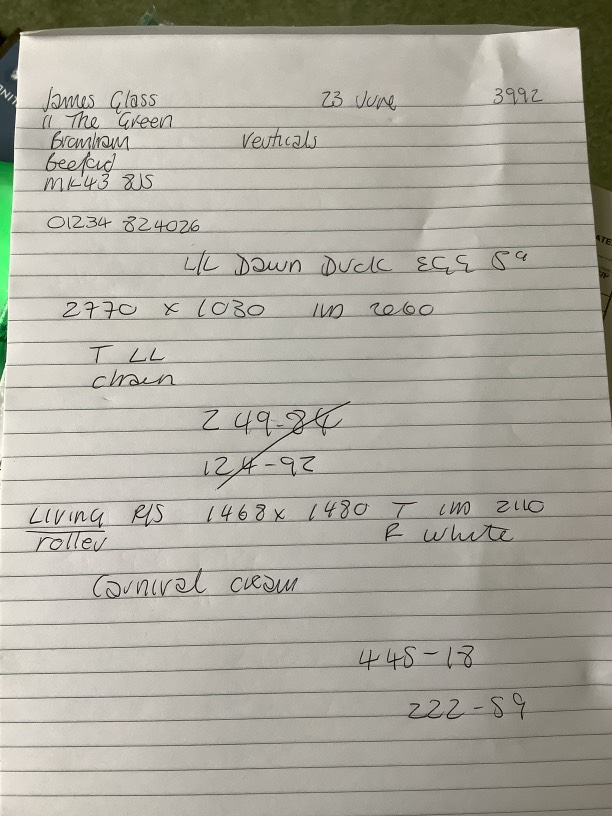 James Glass 23 June 3992
11 The Green
Bromham Verticals
Beeford
MK43 8JS
01234 824026
L/L Dawn Duck EGG 5"
2770 x 1030 IW 2060
T LL
chain
249-84
124-92
Living R/S 1468 x 1480 T IW 2110
roller R White
Carnival cream
445-18
222-59